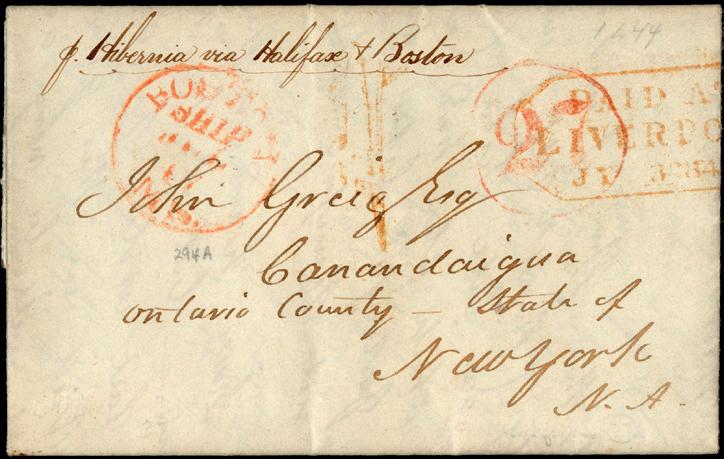 1844
p. Hibernia via Halifax & Boston
BOSTON
SHIP
MS.
27
PAID A
LIVERPO
JY 3 184
John Greig Esq
294A
Canandaigua
Ontario County — State of
New York
N. A.